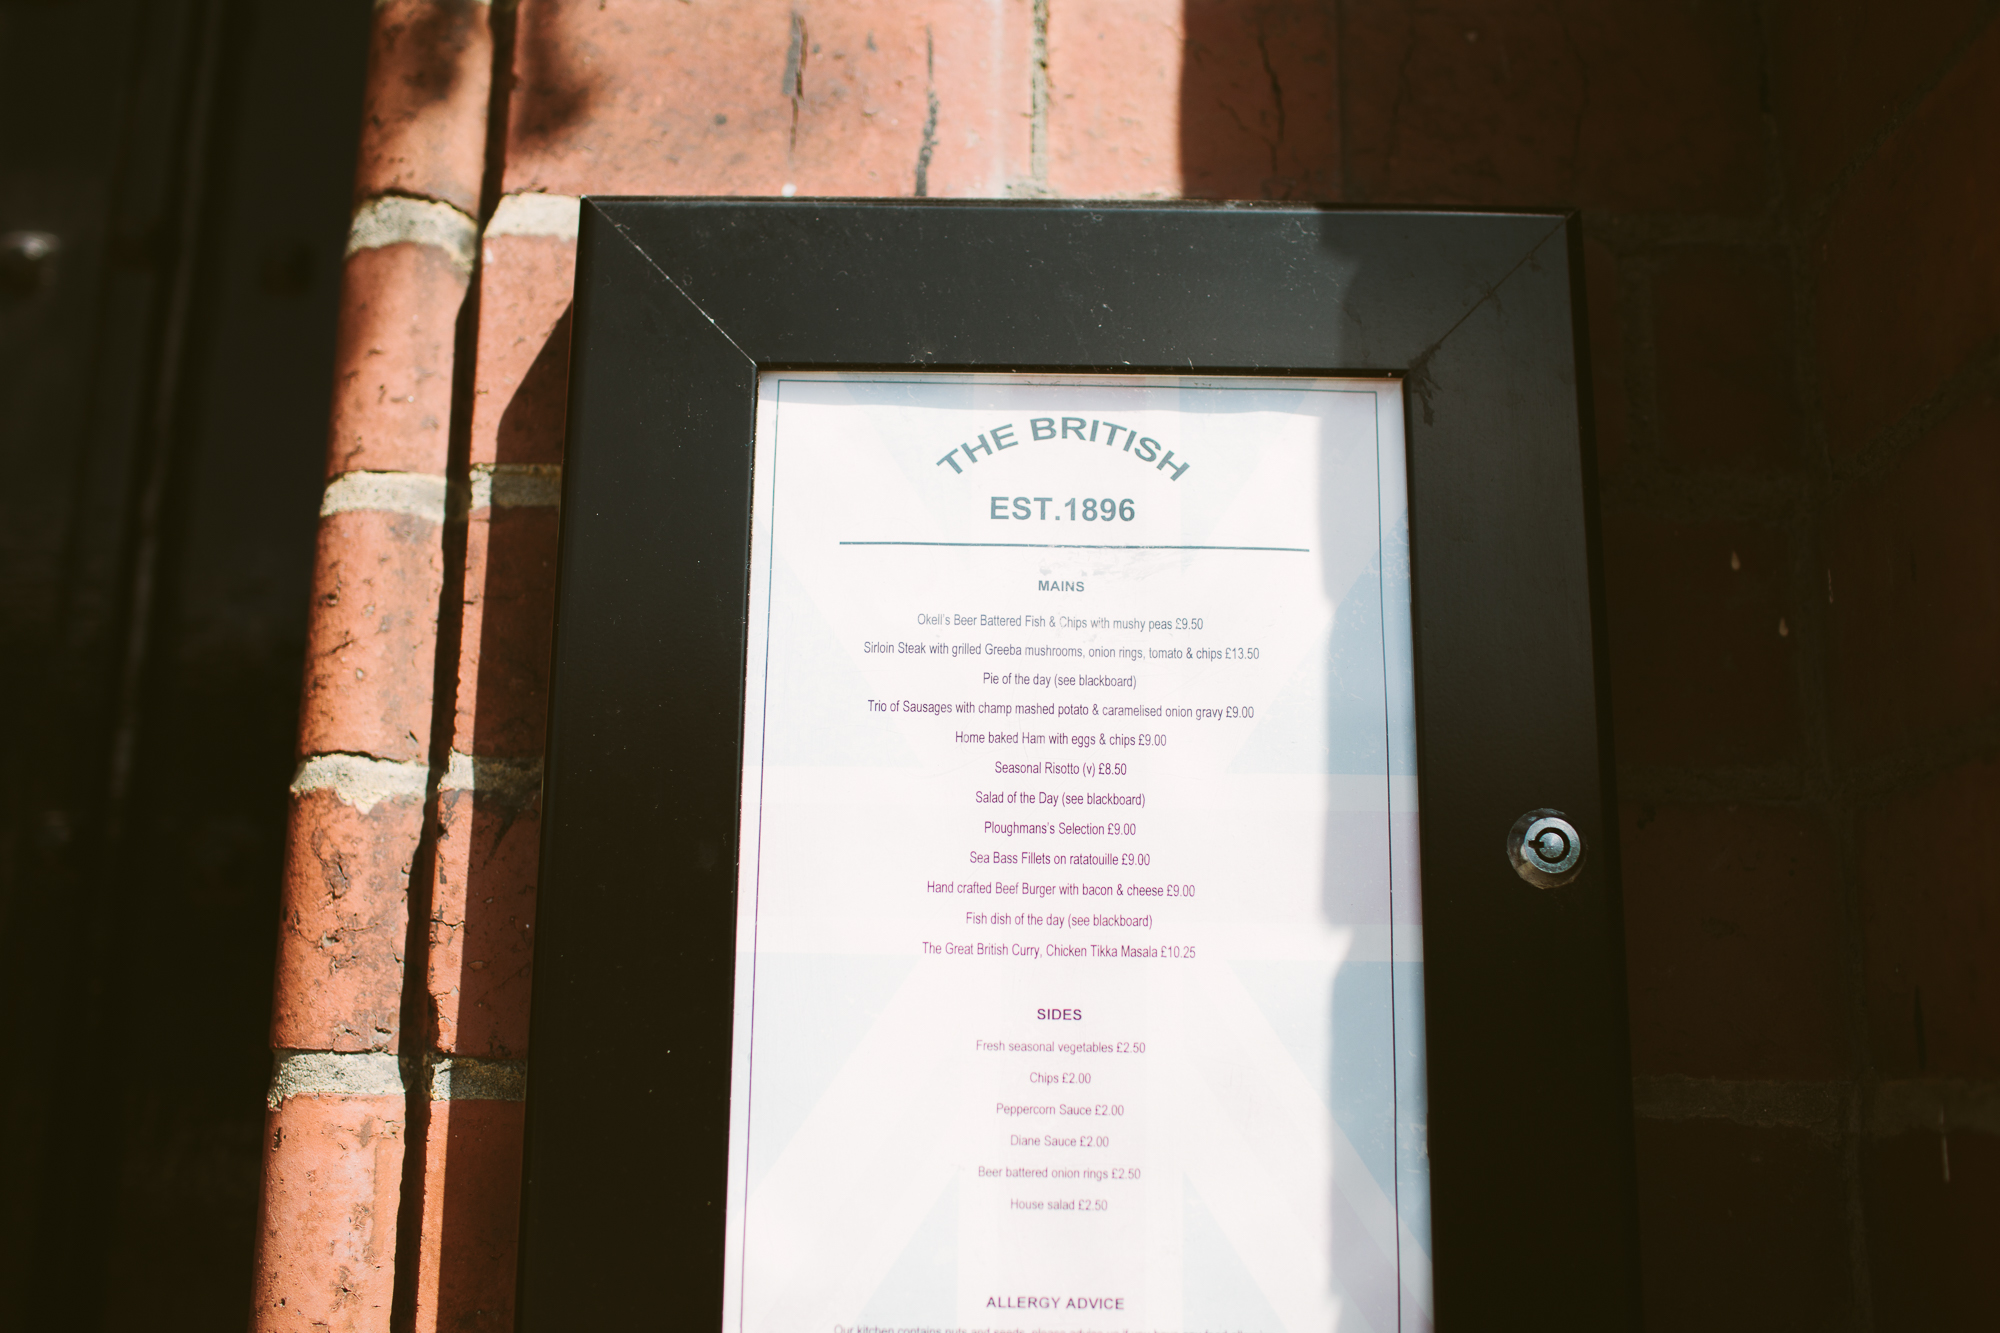 THE BRITISH
EST.1896
MAINS
Okell's Beer Battered Fish & Chips with mushy peas £9.50
Sirloin Steak with grilled Greeba mushrooms, onion rings, tomato & chips £13.50
Pie of the day (see blackboard)
Trio of Sausages with champ mashed potato & caramelised onion gravy £9.00
Home baked Ham with eggs & chips £9.00
Seasonal Risotto (v) £8.50
Salad of the Day (see blackboard)
Ploughmans's Selection £9.00
Sea Bass Fillets on ratatouille £9.00
Hand crafted Beef Burger with bacon & cheese £9.00
Fish dish of the day (see blackboard)
The Great British Curry, Chicken Tikka Masala £10.25
SIDES
Fresh seasonal vegetables £2.50
Chips £2.00
Peppercorn Sauce £2.00
Diane Sauce £2.00
Beer battered onion rings £2.50
House salad £2.50
ALLERGY ADVICE
Our kitchen contains nuts and seeds, please advise